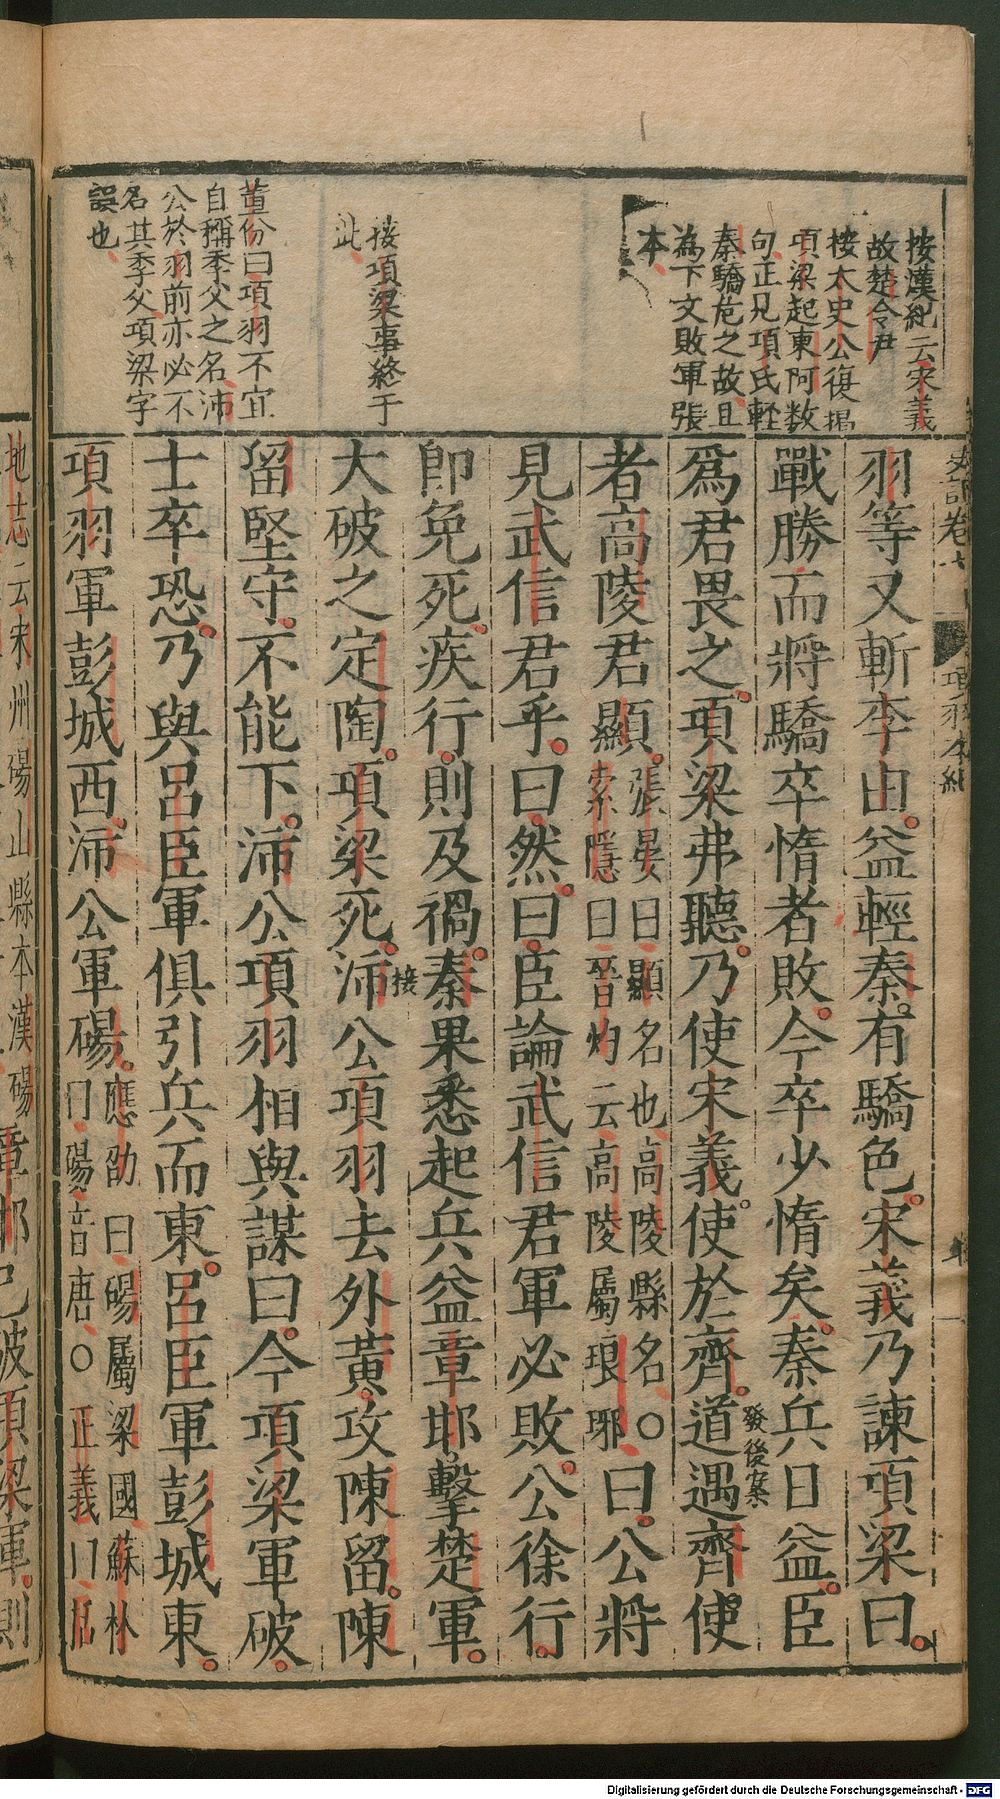 按漢紀云宋義
故楚令尹
按太史公復揭
項梁起東阿数
句正見項氏輕
秦驕危之故且
為下文敗軍張
本
接項梁事終于
此
董份曰項羽不宜
自稱季父之名沛
公於羽前亦必不
名其季父項梁字
誤也
史記卷七
項羽本紀
羽等又斬李由益輕秦有驕色宋義乃諫項梁曰
戰勝而將驕卒惰者敗今卒少惰矣秦兵日益臣
為君畏之項梁弗聽乃使宋義使於齊道遇齊使
發後案
者高陵君顯張晏曰顯名也高陵縣名○索隱曰晉灼云高陵屬琅邪曰公將
見武信君乎曰然曰臣論武信君軍必敗公徐行
即免死疾行則及禍秦果悉起兵益章邯擊楚軍
大破之定陶項梁死沛公項羽去外黃攻陳留陳
接
留堅守不能下沛公項羽相與謀曰今項梁軍破
士卒恐乃與呂臣軍俱引兵而東呂臣軍彭城東
項羽軍彭城西沛公軍碭應劭曰碭屬梁國蘇林曰碭音唐○正義曰括
地志云宋州碭山縣本漢碭章邯已破項梁軍則
Digitalisierung gefördert durch die Deutsche Forschungsgemeinschaft - DFG